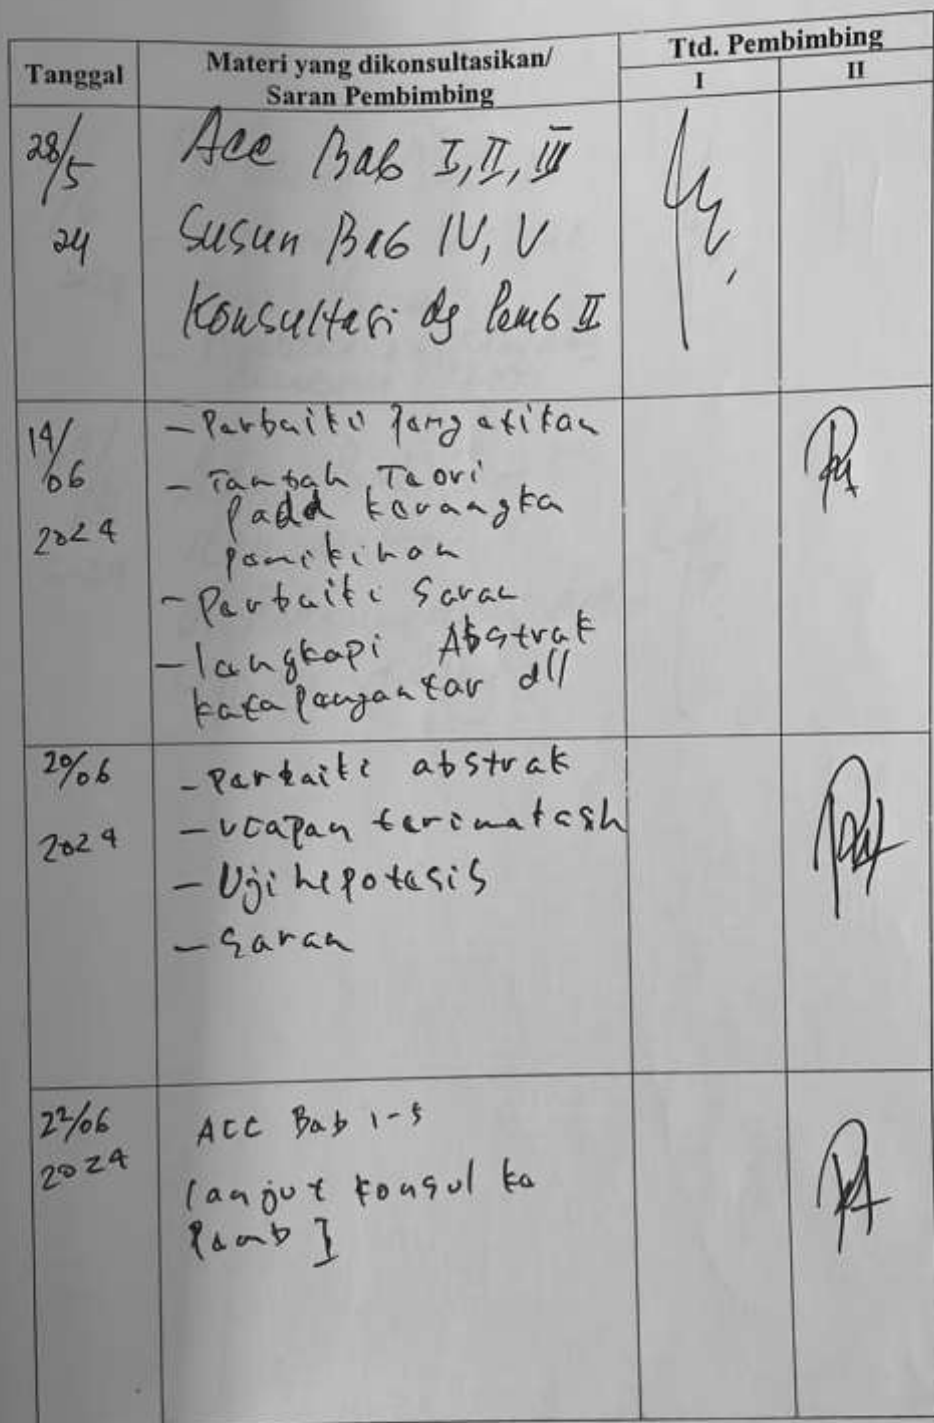 Tanggal
Materi yang dikonsultasikan/
Saran Pembimbing
Ttd. Pembimbing
I
II
28/5
24
Acc Bab I, II, III
Susun Bab IV, V
Konsultasi dg Pemb II
14/06
2024
- Perbaiki Pengetikan
- Tambah Teori
pada kerangka
pemikiran
- Perbaiki Saran
- lengkapi Abstrak
kata pengantar dll
20/06
2024
- Perbaiki abstrak
- Ucapan terimakasih
- Uji hepotesis
- Saran
22/06
2024
ACC Bab 1-5
lanjut konsul ke
Pemb I